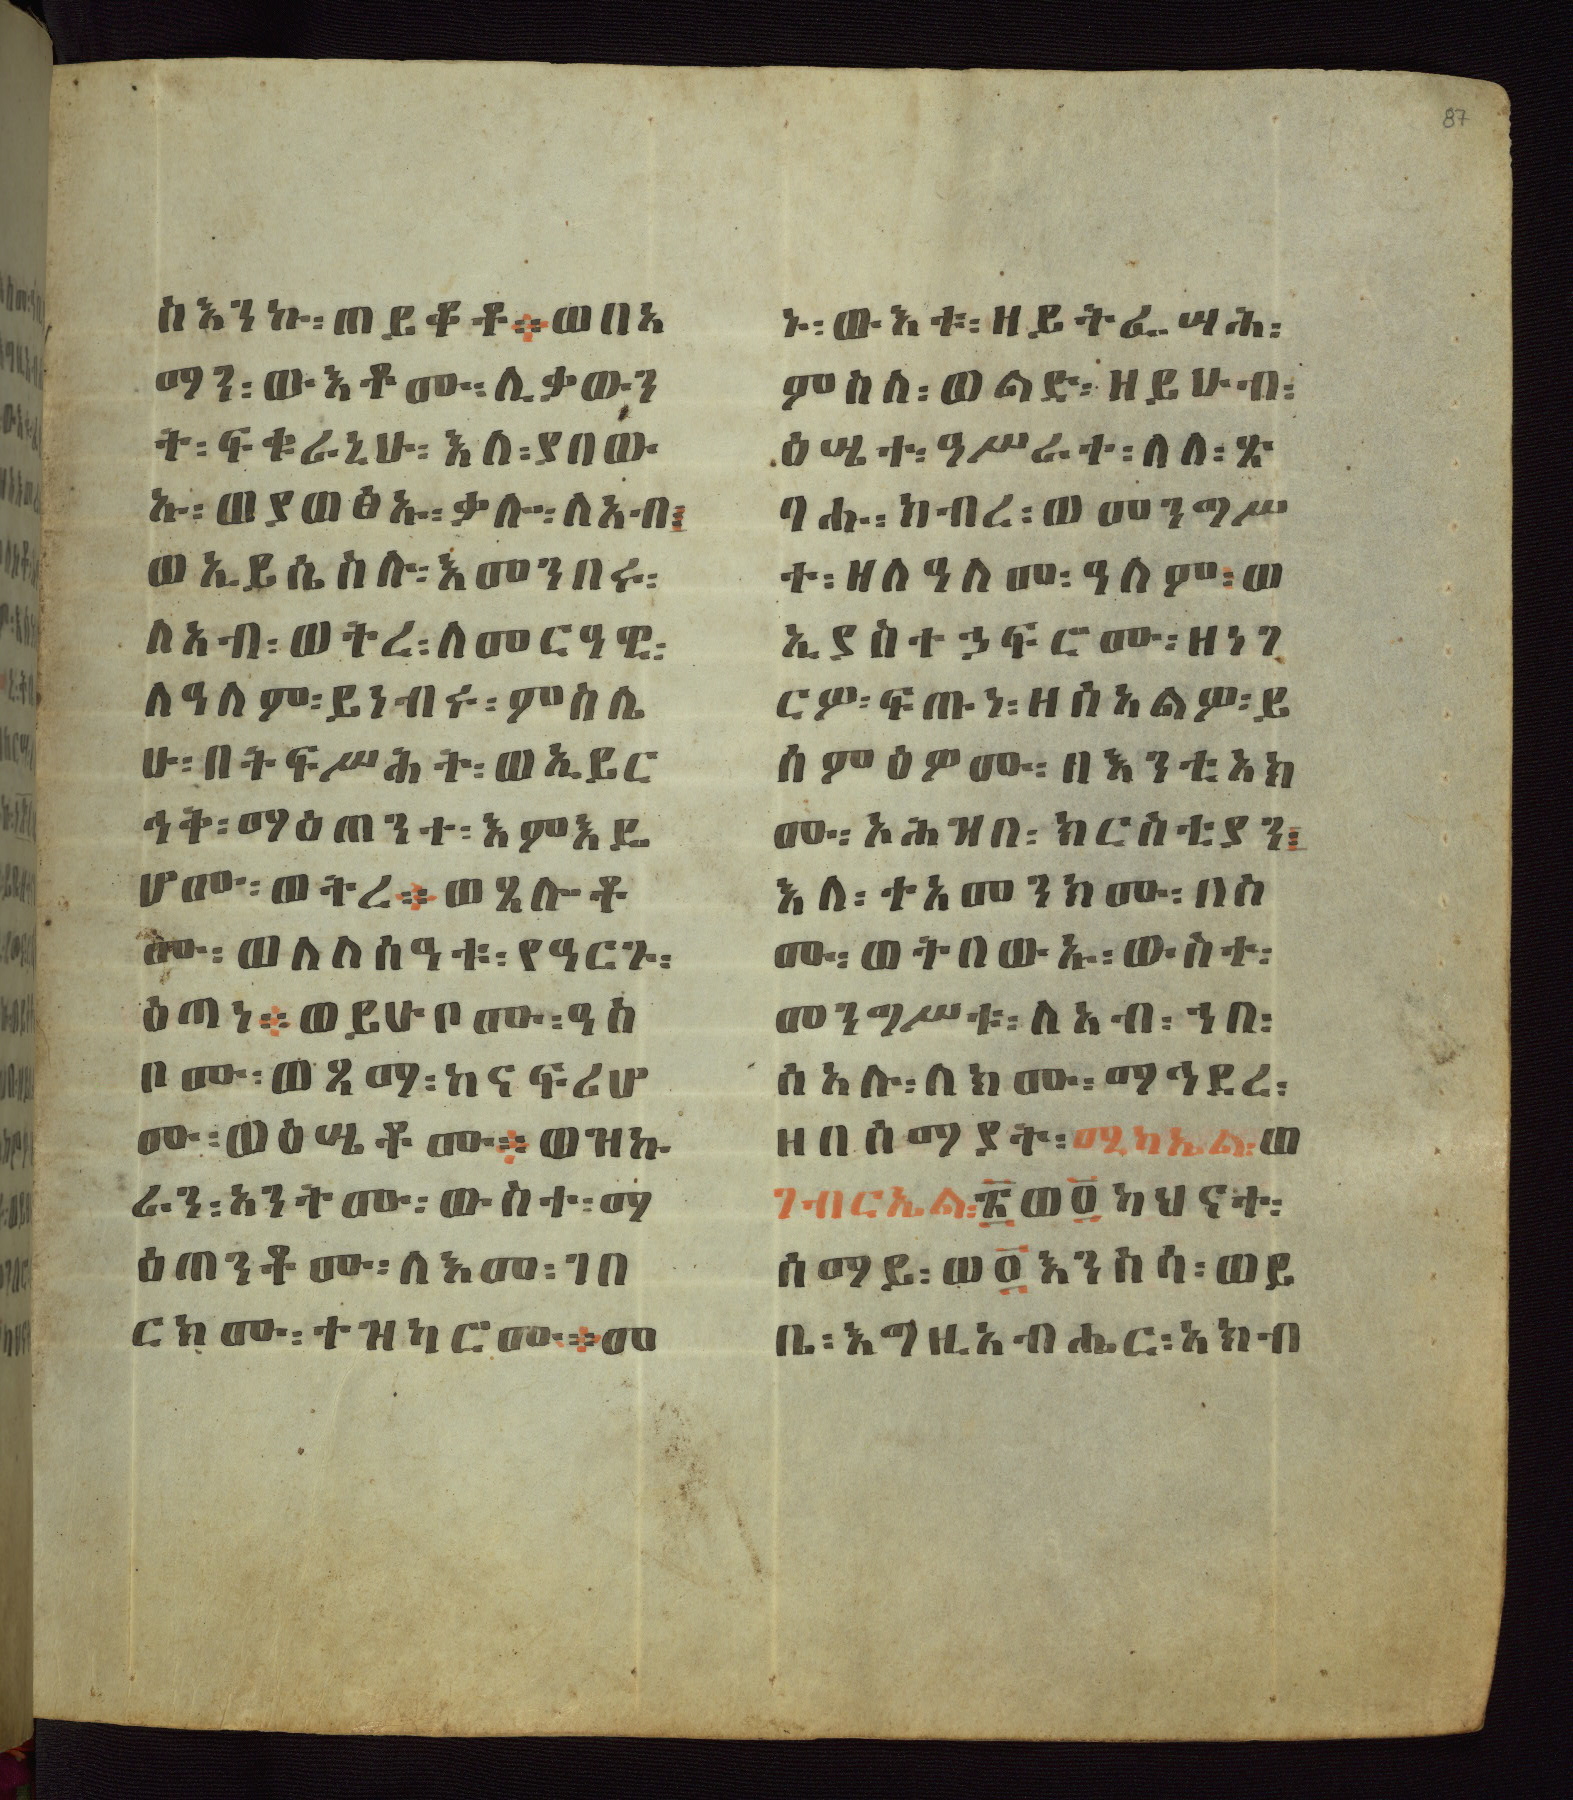 87
ስእንኩ፡ጠይቆቶ፨ወበአ
ማን፡ውእቶሙ፡ሊቃውን
ት፡ፍቱራኒሁ፡እለ፡ያበው
ኡ፡ወያወፅኡ፡ቃሎ፡ለአብ፤
ወኢይሴስሉ፡እመንበሩ፡
ለአብ፡ወትረ፡ለመርዓዊ፡
ለዓለም፡ይነብሩ፡ምስሌ
ሁ፡በትፍሥሕት፡ወኢይር
ኅት፡ማዕጠንተ፡እምእዴ
ሆሙ፡ወትረ፨ወጼሎቶ
ሙ፡ወለለሰዓቱ፡የዓርጉ፡
ዕጣነ፨ወይሁቦሙ፡ዓስ
ቦሙ፡ወጼማ፡ከናፍሪሆ
ሙ፡ወዕሤቶሙ፨ወዝኩ
ራን፡አንትሙ፡ውስተ፡ማ
ዕጠንቶሙ፡ለእመ፡ገበ
ርክሙ፡ተዝካሮሙ፨መ
ኑ፡ውእቱ፡ዘይትፌሣሕ፡
ምስለ፡ወልድ፡ዘይሁብ፡
ዕሤተ፡ዓሥራተ፡ለለ፡ጽ
ባሑ፡ክብረ፡ወመንግሥ
ተ፡ዘለዓለመ፡ዓለም፡ወ
ኢያስተኃፍሮሙ፡ዘነገ
ርዎ፡ፍጡነ፡ዘሰአልዎ፡ይ
ሰምዕዎሙ፡በእንቲአክ
ሙ፡አሕዝበ፡ክርስቲያን፤
እለ፡ተአመንክሙ፡በስ
ሙ፡ወትበውኡ፡ውስተ፡
መንግሥቱ፡ለአብ፡ኀበ፡
ሰአሉ፡ለክሙ፡ማኅደረ፡
ዘበሰማያት፡ሚካኤል፡ወ
ገብርኤል፡፳ወ፬ካህናተ፡
ሰማይ፡ወ፬እንስሳ፡ወይ
ቤ፡እግዚአብሔር፡አክብ